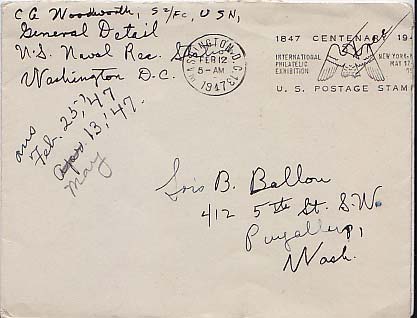 C A Woodworth, S 2/Fc, U S N,
General Detail
U.S. Naval Rec. Sta.
Washington D.C.
WASHINGTON, D.C. 13
FEB 12
5-AM
1947
1847 CENTENARY 194
INTERNATIONAL
PHILATELIC
EXHIBITION
NEW YORK
MAY 17-
U.S. POSTAGE STAM
ans
Feb. 25, '47
Apr. 13, '47.
May
Lois B. Ballou
412 5th St. S.W.
Puyallup,
Wash.